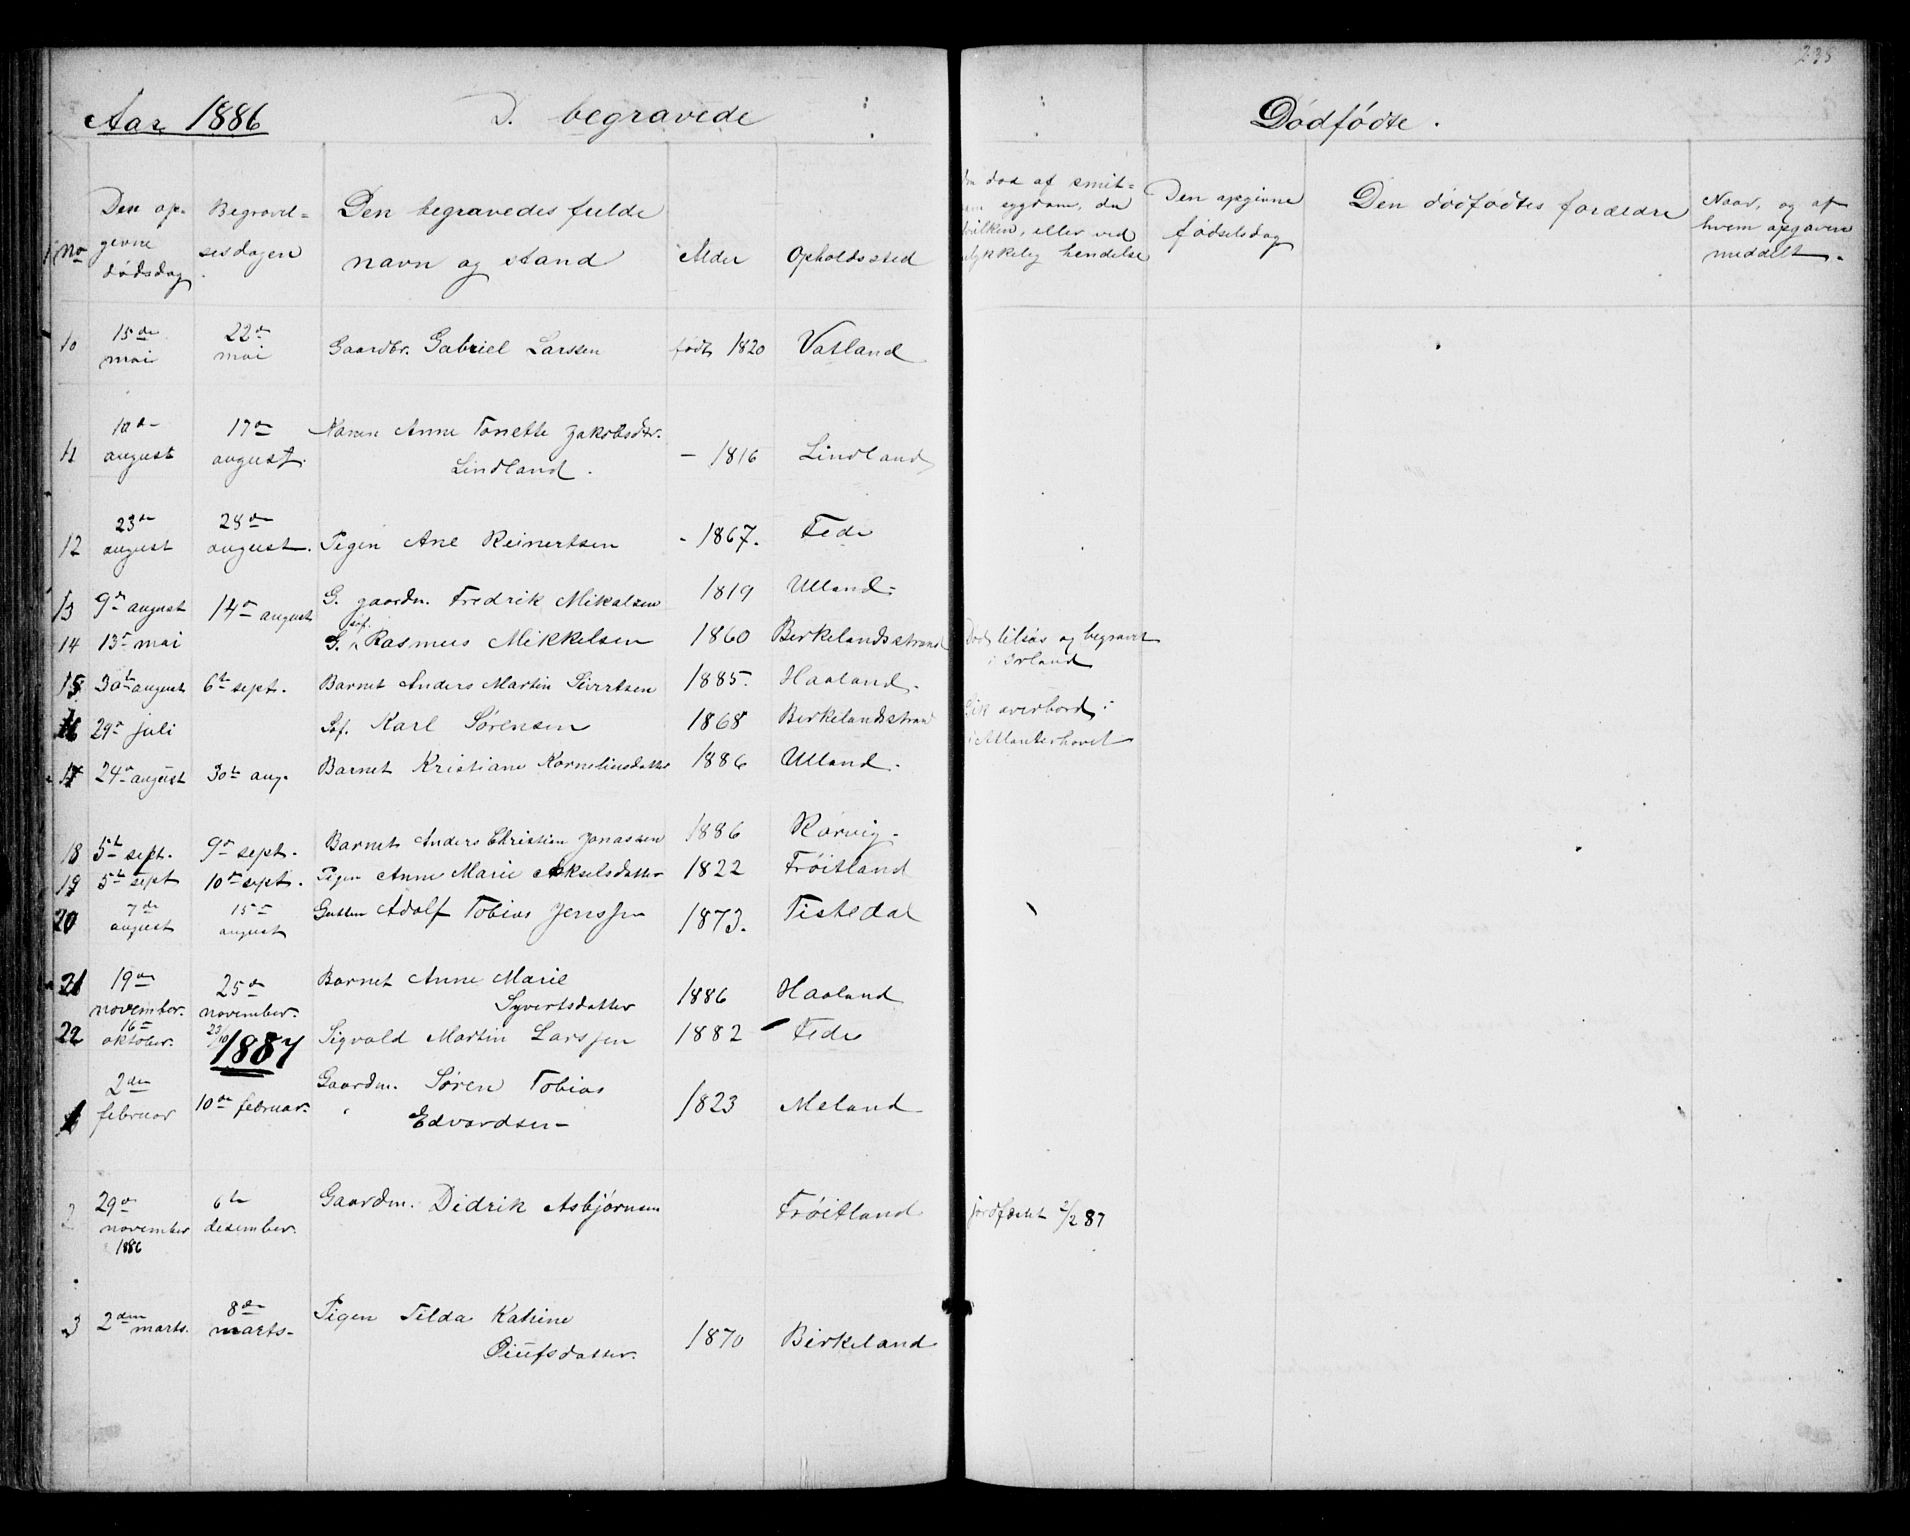 235
Aar 1886 D. begravede
Dødfødte.
No
Den op-
givne
dødsdag
Begravel-
sesdagen
Den begravedes fulde
navn og stand
Alder
Opholdssted
død af smit-
sygdom, da
hvilken, eller ved
ulykkelig hendelse
Den opgivne
fødselsdag
Den dødfødtes forældre
Naar, og af
hvem opgaven
meddelt.
10 15de mai 22de mai Gaardbr. Gabriel Larssen født 1820 Vatland
11 10de august 17de august. Konen Anne Tonette Jakobsdtr. Lindland. - 1816 Lindland
12 23de august 28de august. Pigen Ane Reinertsen - 1867. Fede
13 9de august 14de august G. gaardm. Fredrik Mikalsen 1819 Ulland
14 13de mai G. søf. Rasmus Mikkelsen 1860 Birkelandsstrand Død tilsøs og begravet i Irland
15 30te august 6te sept. Barnet Anders Martin Sivertsen 1885. Haaland.
16 29de juli Søf. Karl Sørensen 1868 Birkelandsstrand Gik overbord i Atlanterhavet
17 24de august 30te aug. Barnet Kristiane Korneliusdatter 1886 Ulland.
18 5te sept. 9de sept. Barnet Anders Christian Jonassen 1886 Rørvig.
19 5te sept 10de sept. Pigen Anne Marie Akselsdatter 1822 Frøitland
20 7de august 15de august Gutten Adolf Tobias Jenssen 1873. Tistedal
21 19de november. 25de november. Barnet Anne Marie Syvertsdatter 1886 Haaland
22 16de oktober. 23/10 Sigvald Martin Larssen 1882 Fede
1887
1 2den februar 10de februar. Gaardm. Søren Tobias Edvardsen 1823 Meland
2 29de november 1886 6te desember. Gaardm. Didrik Asbjørnsen Frøitland jordfæstet 2/2 87
3 2den marts. 8de marts Pigen Tilda Katrine Øiufsdatter. 1870 Birkeland